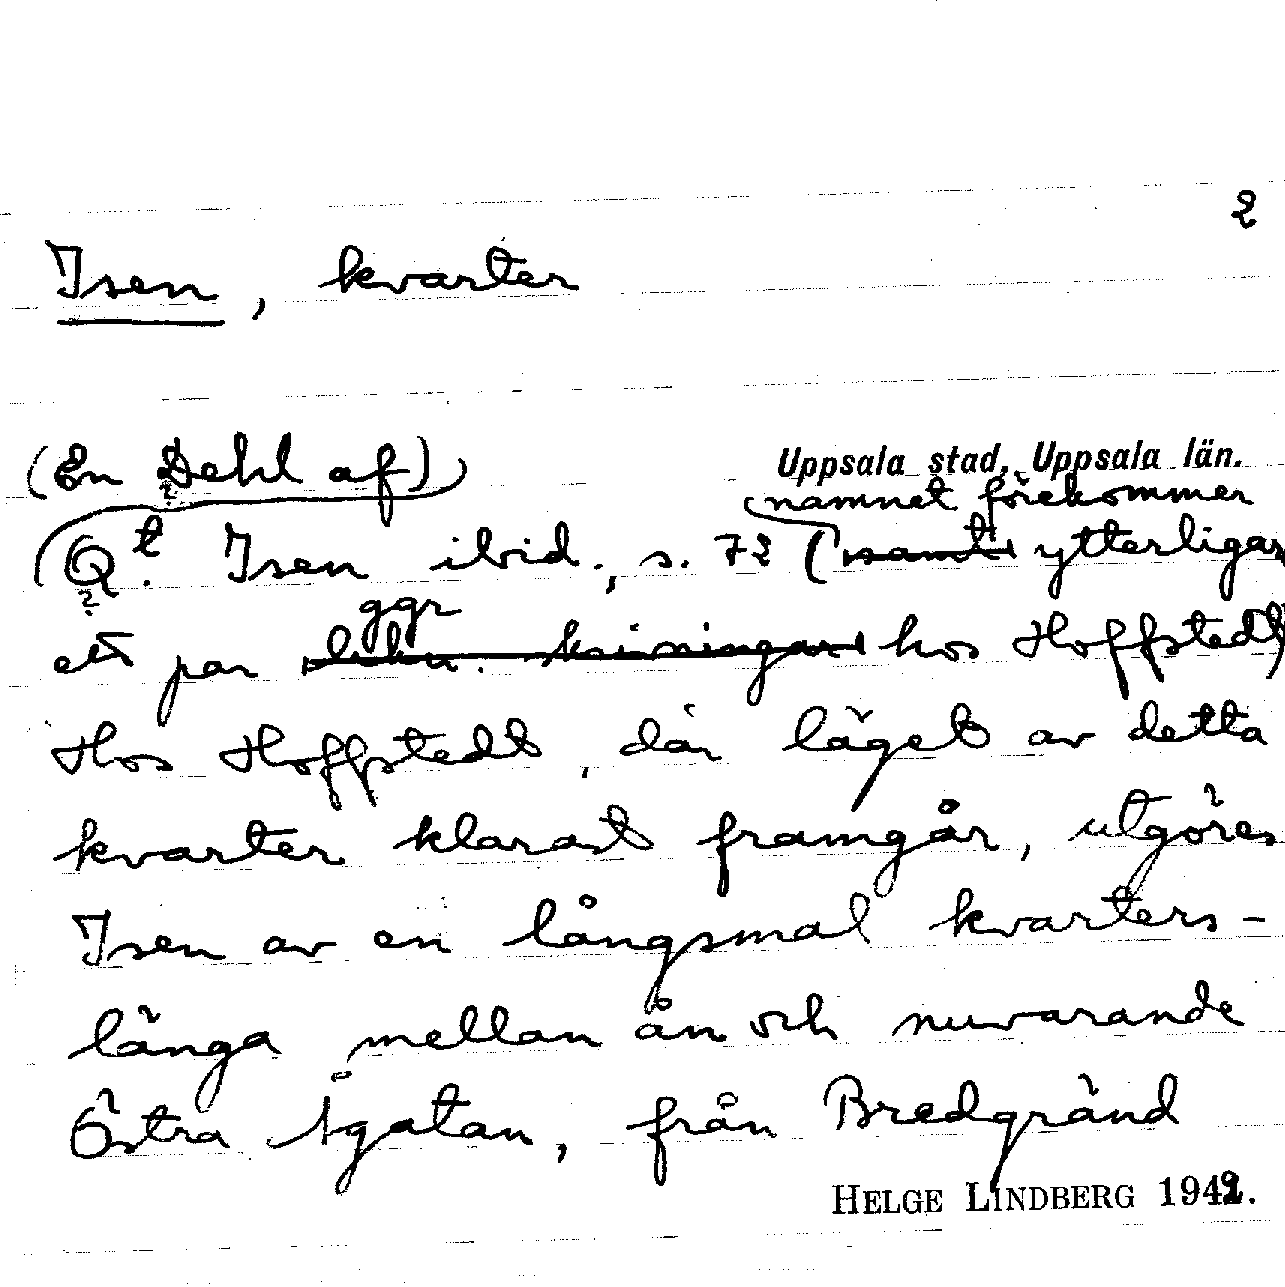 2
Isen, kvarter
(En Dehl af)
Uppsala stad, Uppsala län.
namnet förekommer
Qt. Isen ibid., s. 72 (samt ytterligare
ggr
ett par likn. skrivningar hos Hoffstedt)
Hos Hoffstedt, där läget av detta
kvarter klarast framgår, utgöres
Isen av en långsmal kvarters-
länga mellan ån och nuvarande
Östra Ågatan, från Bredgränd
HELGE LINDBERG 1942.